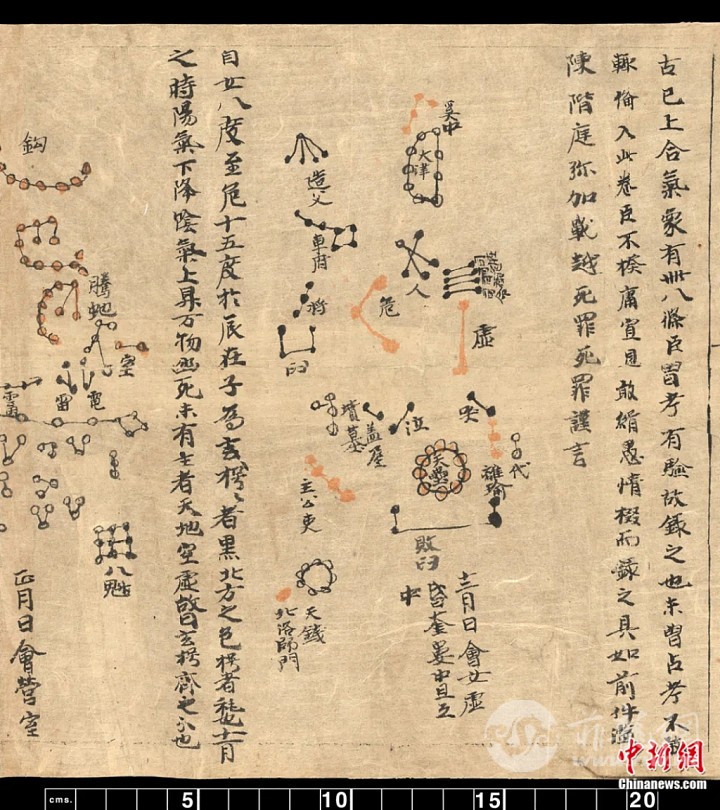 古已上合氣象有卌八條臣曾考有驗故錄之也未曾占考不敢
輒備入此卷臣不揆庸宣見敢緝愚情掇而錄之具如前件滥
陳階庭弥加戰越死罪死罪謹言
奚中
天津
人
虛
危
造父
車府
杵
臼
哭
泣
蓋屋
墳墓
代
離瑜
天壘
敗臼
主公吏
天錢
北落師門
十二月日會女虛
昏奎婁中旦亙
中
自女八度至危十五度於辰在子為玄枵枵者黑北方之色枵者耗也十一月
之時陽氣下降陰氣上昇万物幽死未有生者天地空虛故曰玄枵齊之分也
鈎
騰蛇
室
電
雷
八魁
正月日會營室
中新網
Chinanews.com
cms. 5 10 15 20